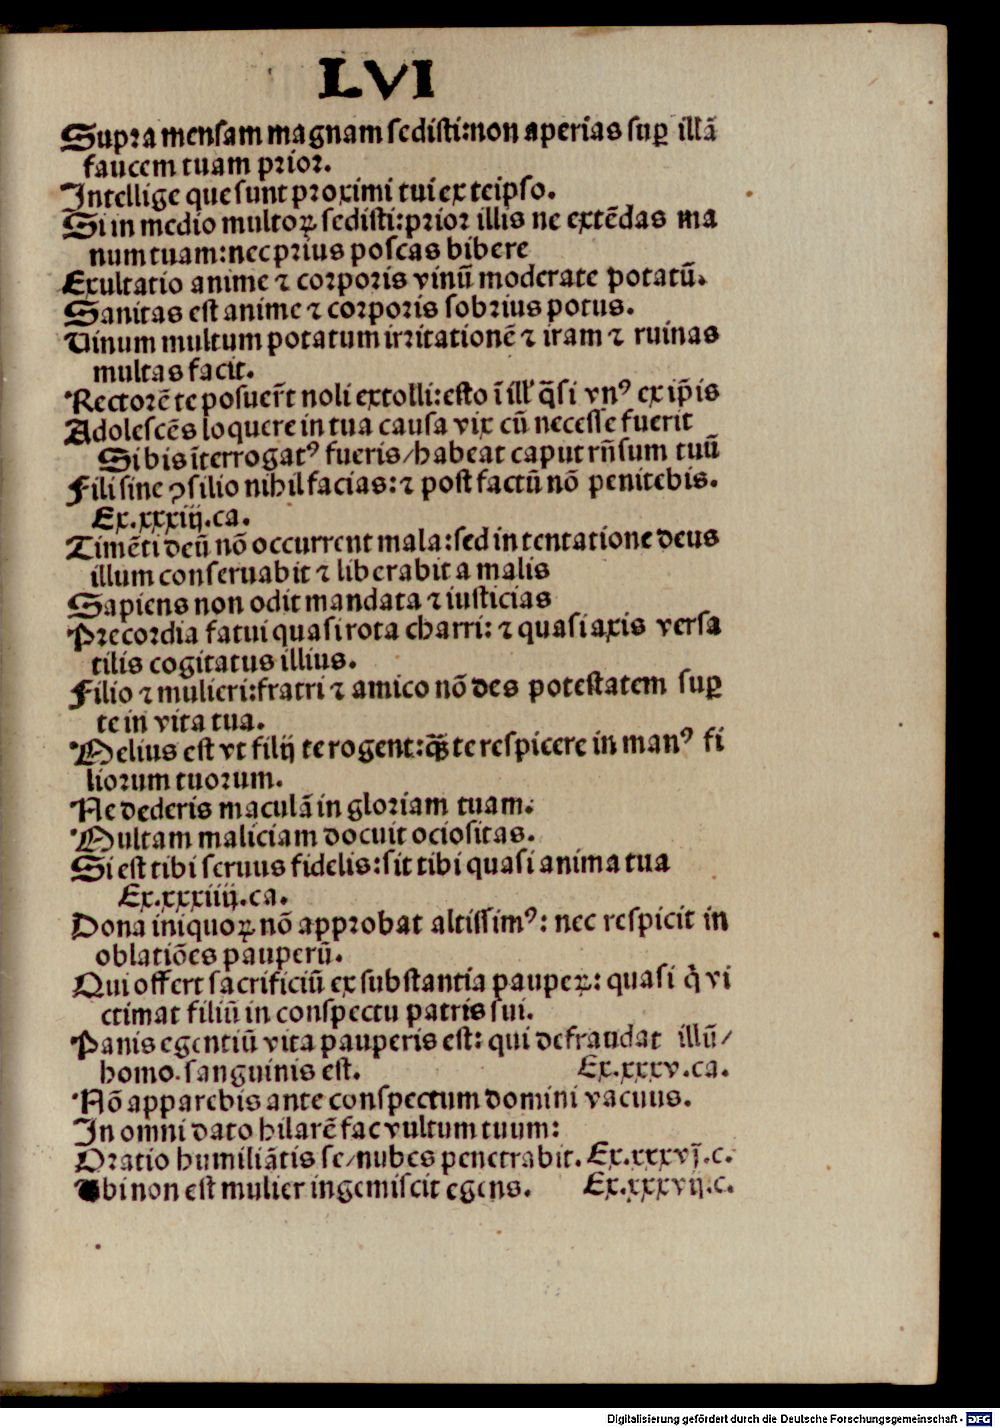 LVI
Supra mensam magnam sedisti:non aperias suꝑ illã
faucem tuam prior.
Intellige que sunt proximi tui ex teipso.
Si in medio multoꝝ sedisti:prior illis ne extẽdas ma
num tuam:nec prius poscas bibere
Exultatio anime ⁊ corporis vinũ moderate potatũ.
Sanitas est anime ⁊ corporis sobrius potus.
Vinum multum potatum irritationẽ ⁊ iram ⁊ ruinas
multas facit.
Rectorẽ te posuer̃t noli extolli:esto ĩ ill' q̃si vnꝰ ex ip̃is
Adolescẽs loquere in tua causa vix cũ necesse fuerit
Si bis ĩterrogatꝰ fueris/habeat caput rñsum tuũ
Fili sine ꝯsilio nihil facias:⁊ post factũ nõ penitebis.
Ex.xxxiij.ca.
Timẽti deũ nõ occurrent mala:sed in tentatione deus
illum conseruabit ⁊ liberabit a malis
Sapiens non odit mandata ⁊ iusticias
Precordia fatui quasi rota charri: ⁊ quasi axis versa
tilis cogitatus illius.
Filio ⁊ mulieri:fratri ⁊ amico nõ des potestatem suꝑ
te in vita tua.
Melius est vt filij te rogent:q̃ꝫ te respicere in manꝰ fi
liorum tuorum.
Ne dederis maculã in gloriam tuam.
Multam maliciam docuit ociositas.
Si est tibi seruus fidelis:sit tibi quasi anima tua
Ex.xxxiiij.ca.
Dona iniquoꝝ nõ approbat altissimꝰ: nec respicit in
oblatiões pauperũ.
Qui offert sacrificiũ ex substantia paupeꝝ: quasi q̇ vi
ctimat filiũ in conspectu patris sui.
Panis egentiũ vita pauperis est: qui defraudat illũ/
homo sanguinis est. Ex.xxxv.ca.
Nõ apparebis ante conspectum domini vacuus.
In omni dato hilarẽ fac vultum tuum:
Oratio humiliãtis se/nubes penetrabit. Ex.xxxvj.c.
Vbi non est mulier ingemiscit egens. Ex.xxxvij.c.
Digitalisierung gefördert durch die Deutsche Forschungsgemeinschaft - DFG